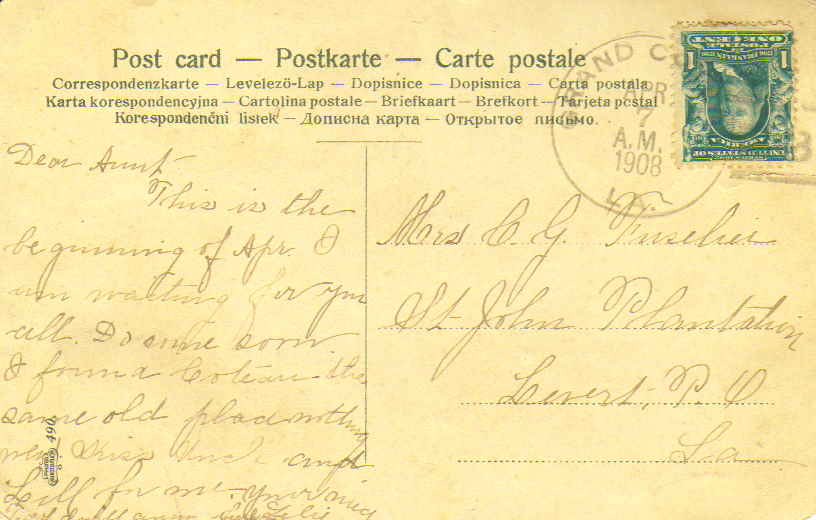 Post card — Postkarte — Carte postale
Correspondenzkarte — Levelező-Lap — Dopisnice — Dopisnica — Carta postala
Karta korespondencyjna — Cartolina postale — Briefkaart — Brefkort — Tarjeta postal
Korespondenční lístek — Дописна карта — Открытое письмо.
GRAND CO
APR
7
A.M.
1908
LA.
1 ONE CENT 1
POSTAGE
FRANKLIN
UNITED STATES OF
AMERICA
Dear Aunt
This is the
beginning of Apr. I
am waiting for you
all. Do come soon
I found Coteau the
same old place nothing
new Kiss and
Lill for me. your
Mrs C. G. Fuselier
St John Plantation
Levert, P. O
La
490